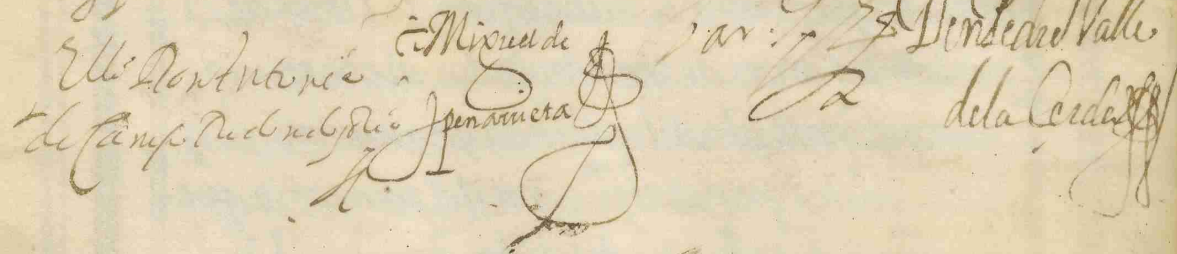 Ell.do Don Antonio
de Campo Redondo y Rio
Miguel de
penarrieta
Don Pedro de Valle
de la Cerda